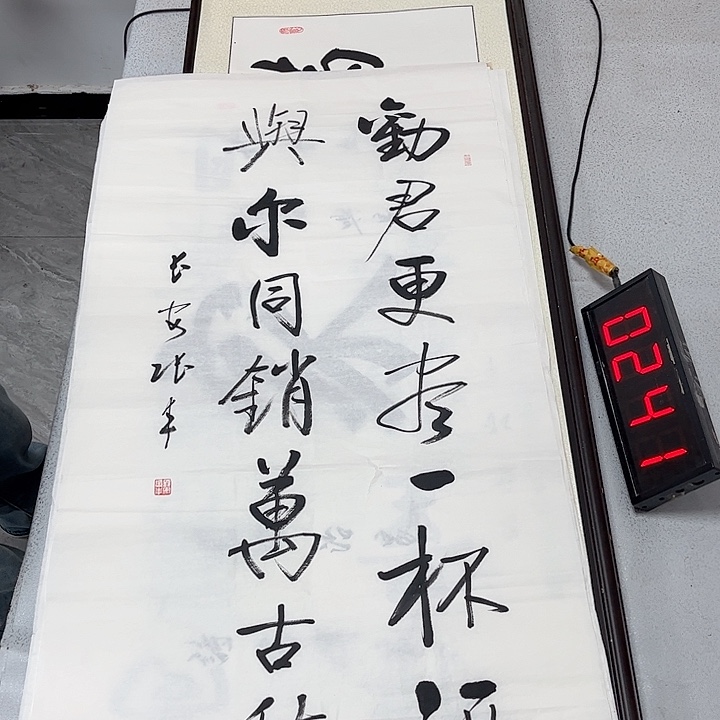 勸君更盡一杯酒
與尔同銷萬古
长安張年
0241